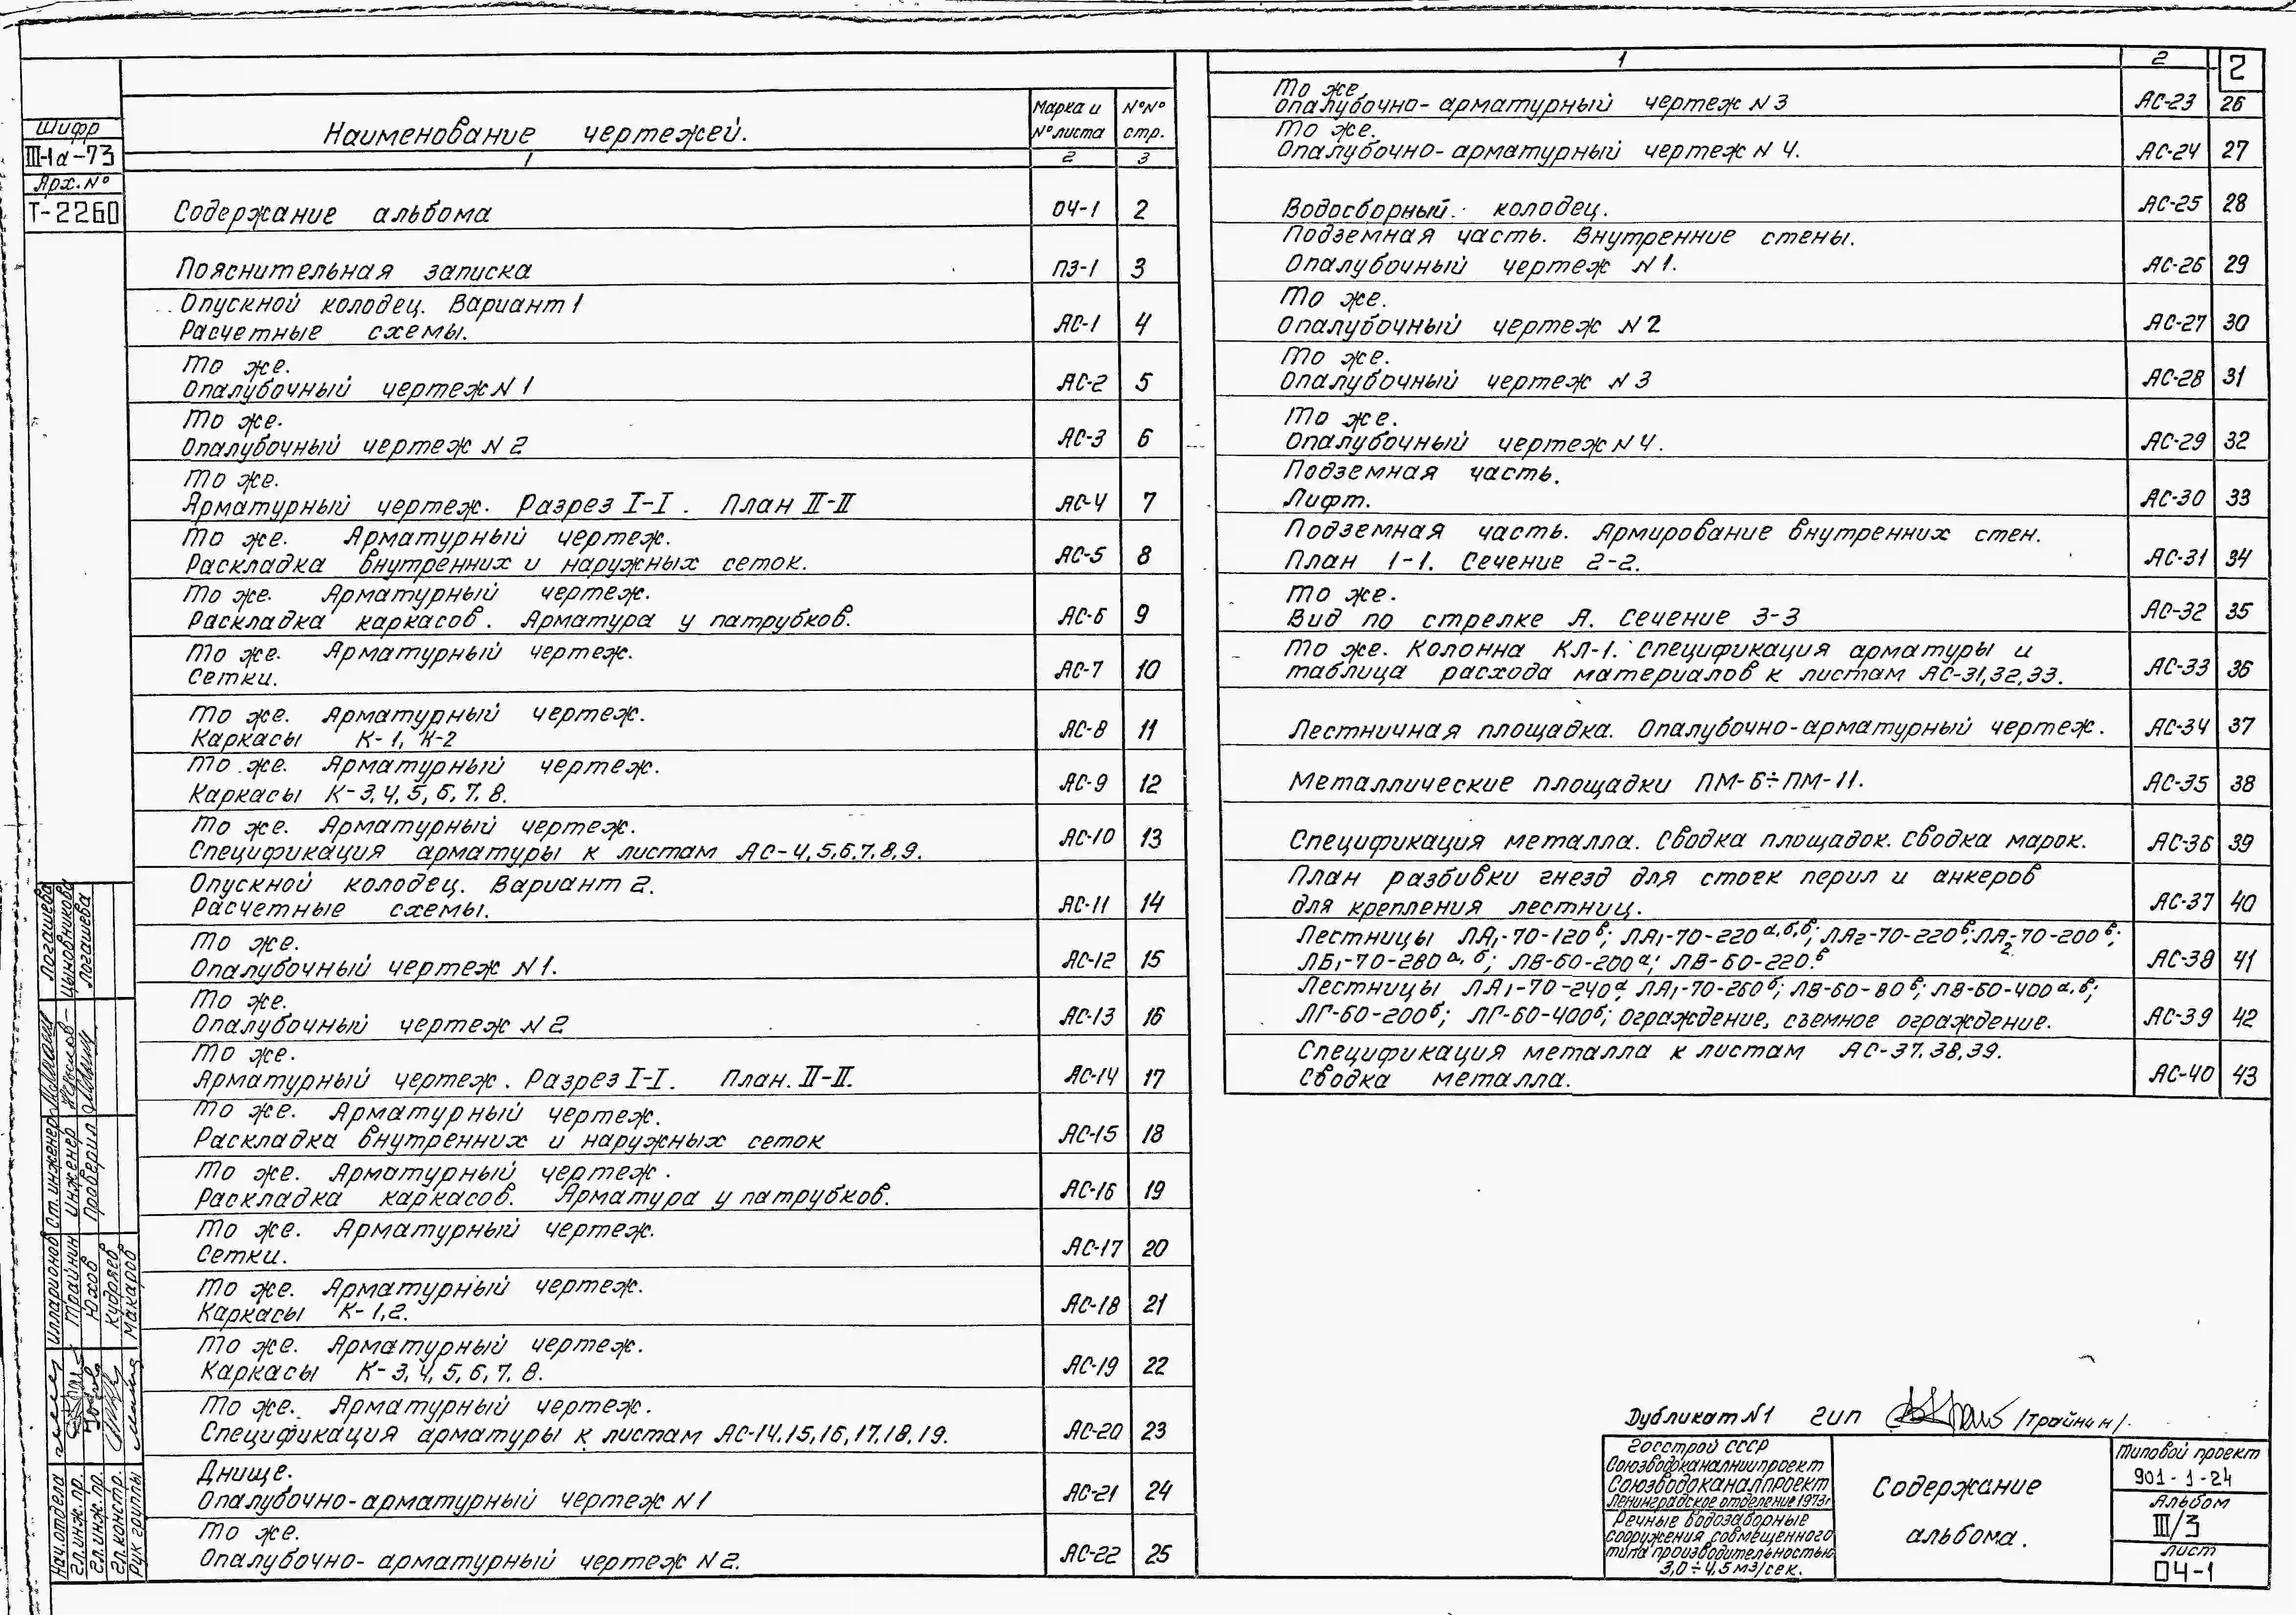 Шифр
III-1а-73
Арх.№
Т-2260
Наименование чертежей.
Марка и № листа
№№ стр.
1
2
3
Содержание альбома ОЧ-1 2
Пояснительная записка ПЗ-1 3
Опускной колодец. Вариант 1
Расчетные схемы. АС-1 4
То же.
Опалубочный чертеж N 1 АС-2 5
То же.
Опалубочный чертеж N 2 АС-3 6
То же.
Арматурный чертеж. Разрез I-I. План II-II АС-4 7
То же. Арматурный чертеж.
Раскладка внутренних и наружных сеток. АС-5 8
То же. Арматурный чертеж.
Раскладка каркасов. Арматура у патрубков. АС-6 9
То же. Арматурный чертеж.
Сетки. АС-7 10
То же. Арматурный чертеж.
Каркасы К-1, К-2 АС-8 11
То же. Арматурный чертеж.
Каркасы К-3,4,5,6,7,8. АС-9 12
То же. Арматурный чертеж.
Спецификация арматуры к листам АС-4,5,6,7,8,9. АС-10 13
Опускной колодец. Вариант 2.
Расчетные схемы. АС-11 14
То же.
Опалубочный чертеж N 1. АС-12 15
То же.
Опалубочный чертеж N 2 АС-13 16
То же.
Арматурный чертеж. Разрез I-I. План. II-II. АС-14 17
То же. Арматурный чертеж.
Раскладка внутренних и наружных сеток АС-15 18
То же. Арматурный чертеж.
Раскладка каркасов. Арматура у патрубков. АС-16 19
То же. Арматурный чертеж.
Сетки. АС-17 20
То же. Арматурный чертеж.
Каркасы К-1,2. АС-18 21
То же. Арматурный чертеж.
Каркасы К-3,4,5,6,7,8. АС-19 22
То же. Арматурный чертеж.
Спецификация арматуры к листам АС-14,15,16,17,18,19. АС-20 23
Днище.
Опалубочно-арматурный чертеж N 1 АС-21 24
То же.
Опалубочно-арматурный чертеж N 2. АС-22 25
1
2
2
То же.
Опалубочно-арматурный чертеж N 3 АС-23 26
То же.
Опалубочно-арматурный чертеж N 4. АС-24 27
Водосборный колодец. АС-25 28
Подземная часть. Внутренние стены.
Опалубочный чертеж N 1. АС-26 29
То же.
Опалубочный чертеж N 2 АС-27 30
То же.
Опалубочный чертеж N 3 АС-28 31
То же.
Опалубочный чертеж N 4. АС-29 32
Подземная часть.
Лифт. АС-30 33
Подземная часть. Армирование внутренних стен.
План 1-1. Сечение 2-2. АС-31 34
То же.
Вид по стрелке А. Сечение 3-3 АС-32 35
То же. Колонна КЛ-1. Спецификация арматуры и
таблица расхода материалов к листам АС-31,32,33. АС-33 36
Лестничная площадка. Опалубочно-арматурный чертеж. АС-34 37
Металлические площадки ПМ-6÷ПМ-11. АС-35 38
Спецификация металла. Сводка площадок. Сводка марок. АС-36 39
План разбивки гнезд для стоек перил и анкеров
для крепления лестниц. АС-37 40
Лестницы ЛА1-70-120в; ЛА1-70-220а,б,в; ЛА2-70-220в; ЛА2-70-200в;
ЛБ1-70-280а,б; ЛВ-60-200а; ЛВ-60-220.в АС-38 41
Лестницы ЛА1-70-240а, ЛА1-70-260б; ЛВ-60-80в; ЛВ-60-400а,в;
ЛГ-60-200б; ЛГ-60-400б; ограждение, съемное ограждение. АС-39 42
Спецификация металла к листам АС-37,38,39.
Сводка металла. АС-40 43
Логашева
Цыновникова
Логашева
Ст.инженер
инженер
Проверил
Илларионов
Трайнин
Юхов
Кудряев
Макаров
Нач.отдела
Гл.инж.пр.
Гл.инж.пр.
Гл.констр.
Рук группы
Дубликат N1 ГИП /Трайнин/
Госстрой СССР
Союзводоканалниипроект
Союзводоканалпроект
Ленинградское отделение 1973г
Речные водозаборные
сооружения совмещенного
типа производительностью
3,0÷4,5 м3/сек.
Содержание
альбома.
Типовой проект
901-1-24
Альбом
III/3
Лист
ОЧ-1